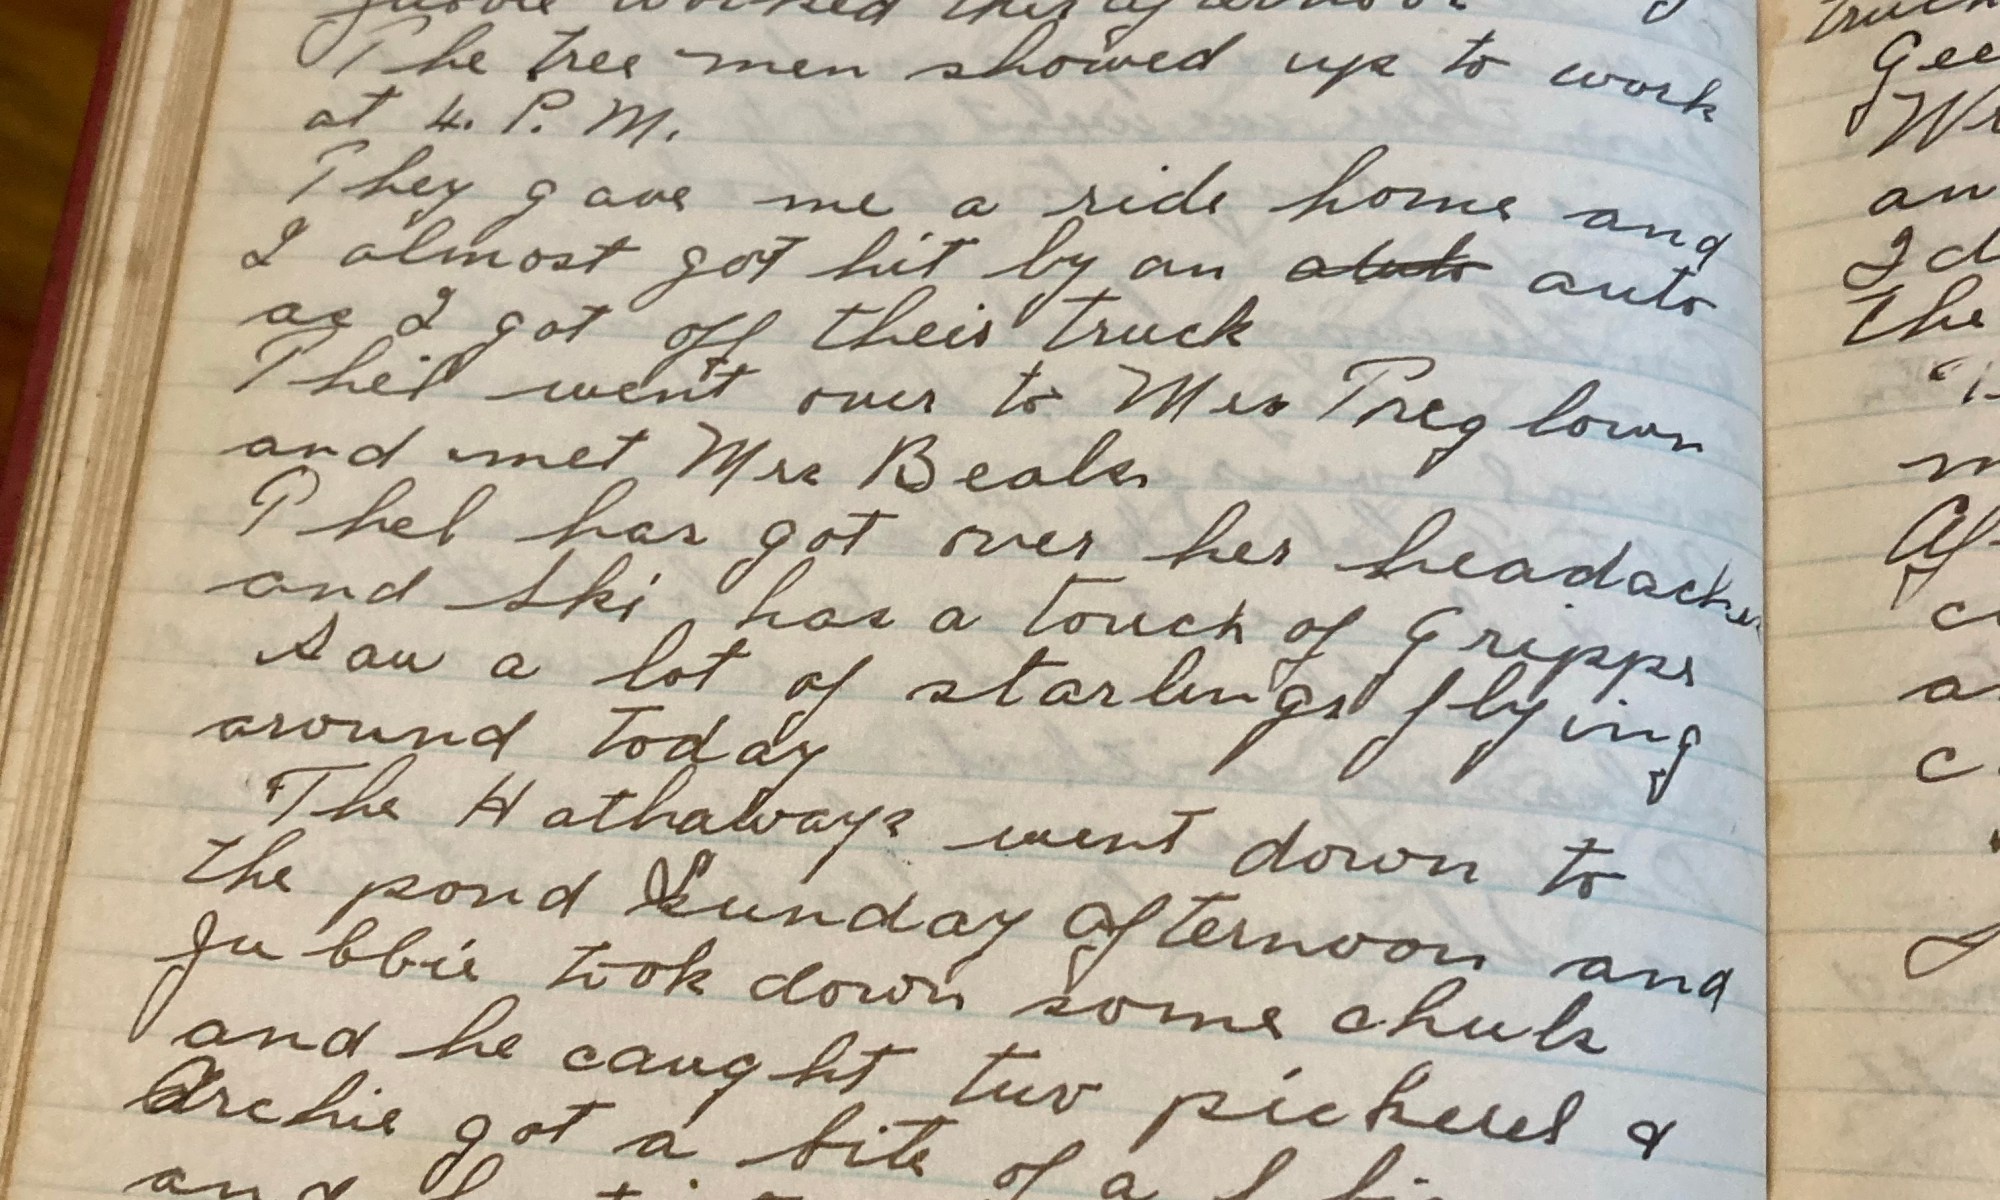 worked this afternoon
The tree men showed up to work
at 4. P. M.
They gave me a ride home and
I almost got hit by an auto
as I got off their truck
Phel went over to Mrs Preglown
and met Mrs Beals
Phel has got over her headache
and Ski has a touch of Grippe
Saw a lot of starlings flying
around today
The Hathaways went down to
the pond Sunday afternoon and
Jubbie took down some chubs
and he caught two pickerel &
Archie got a bite of a
and
truck
Gee
Wr
an
I d
the
m
Af
a
c